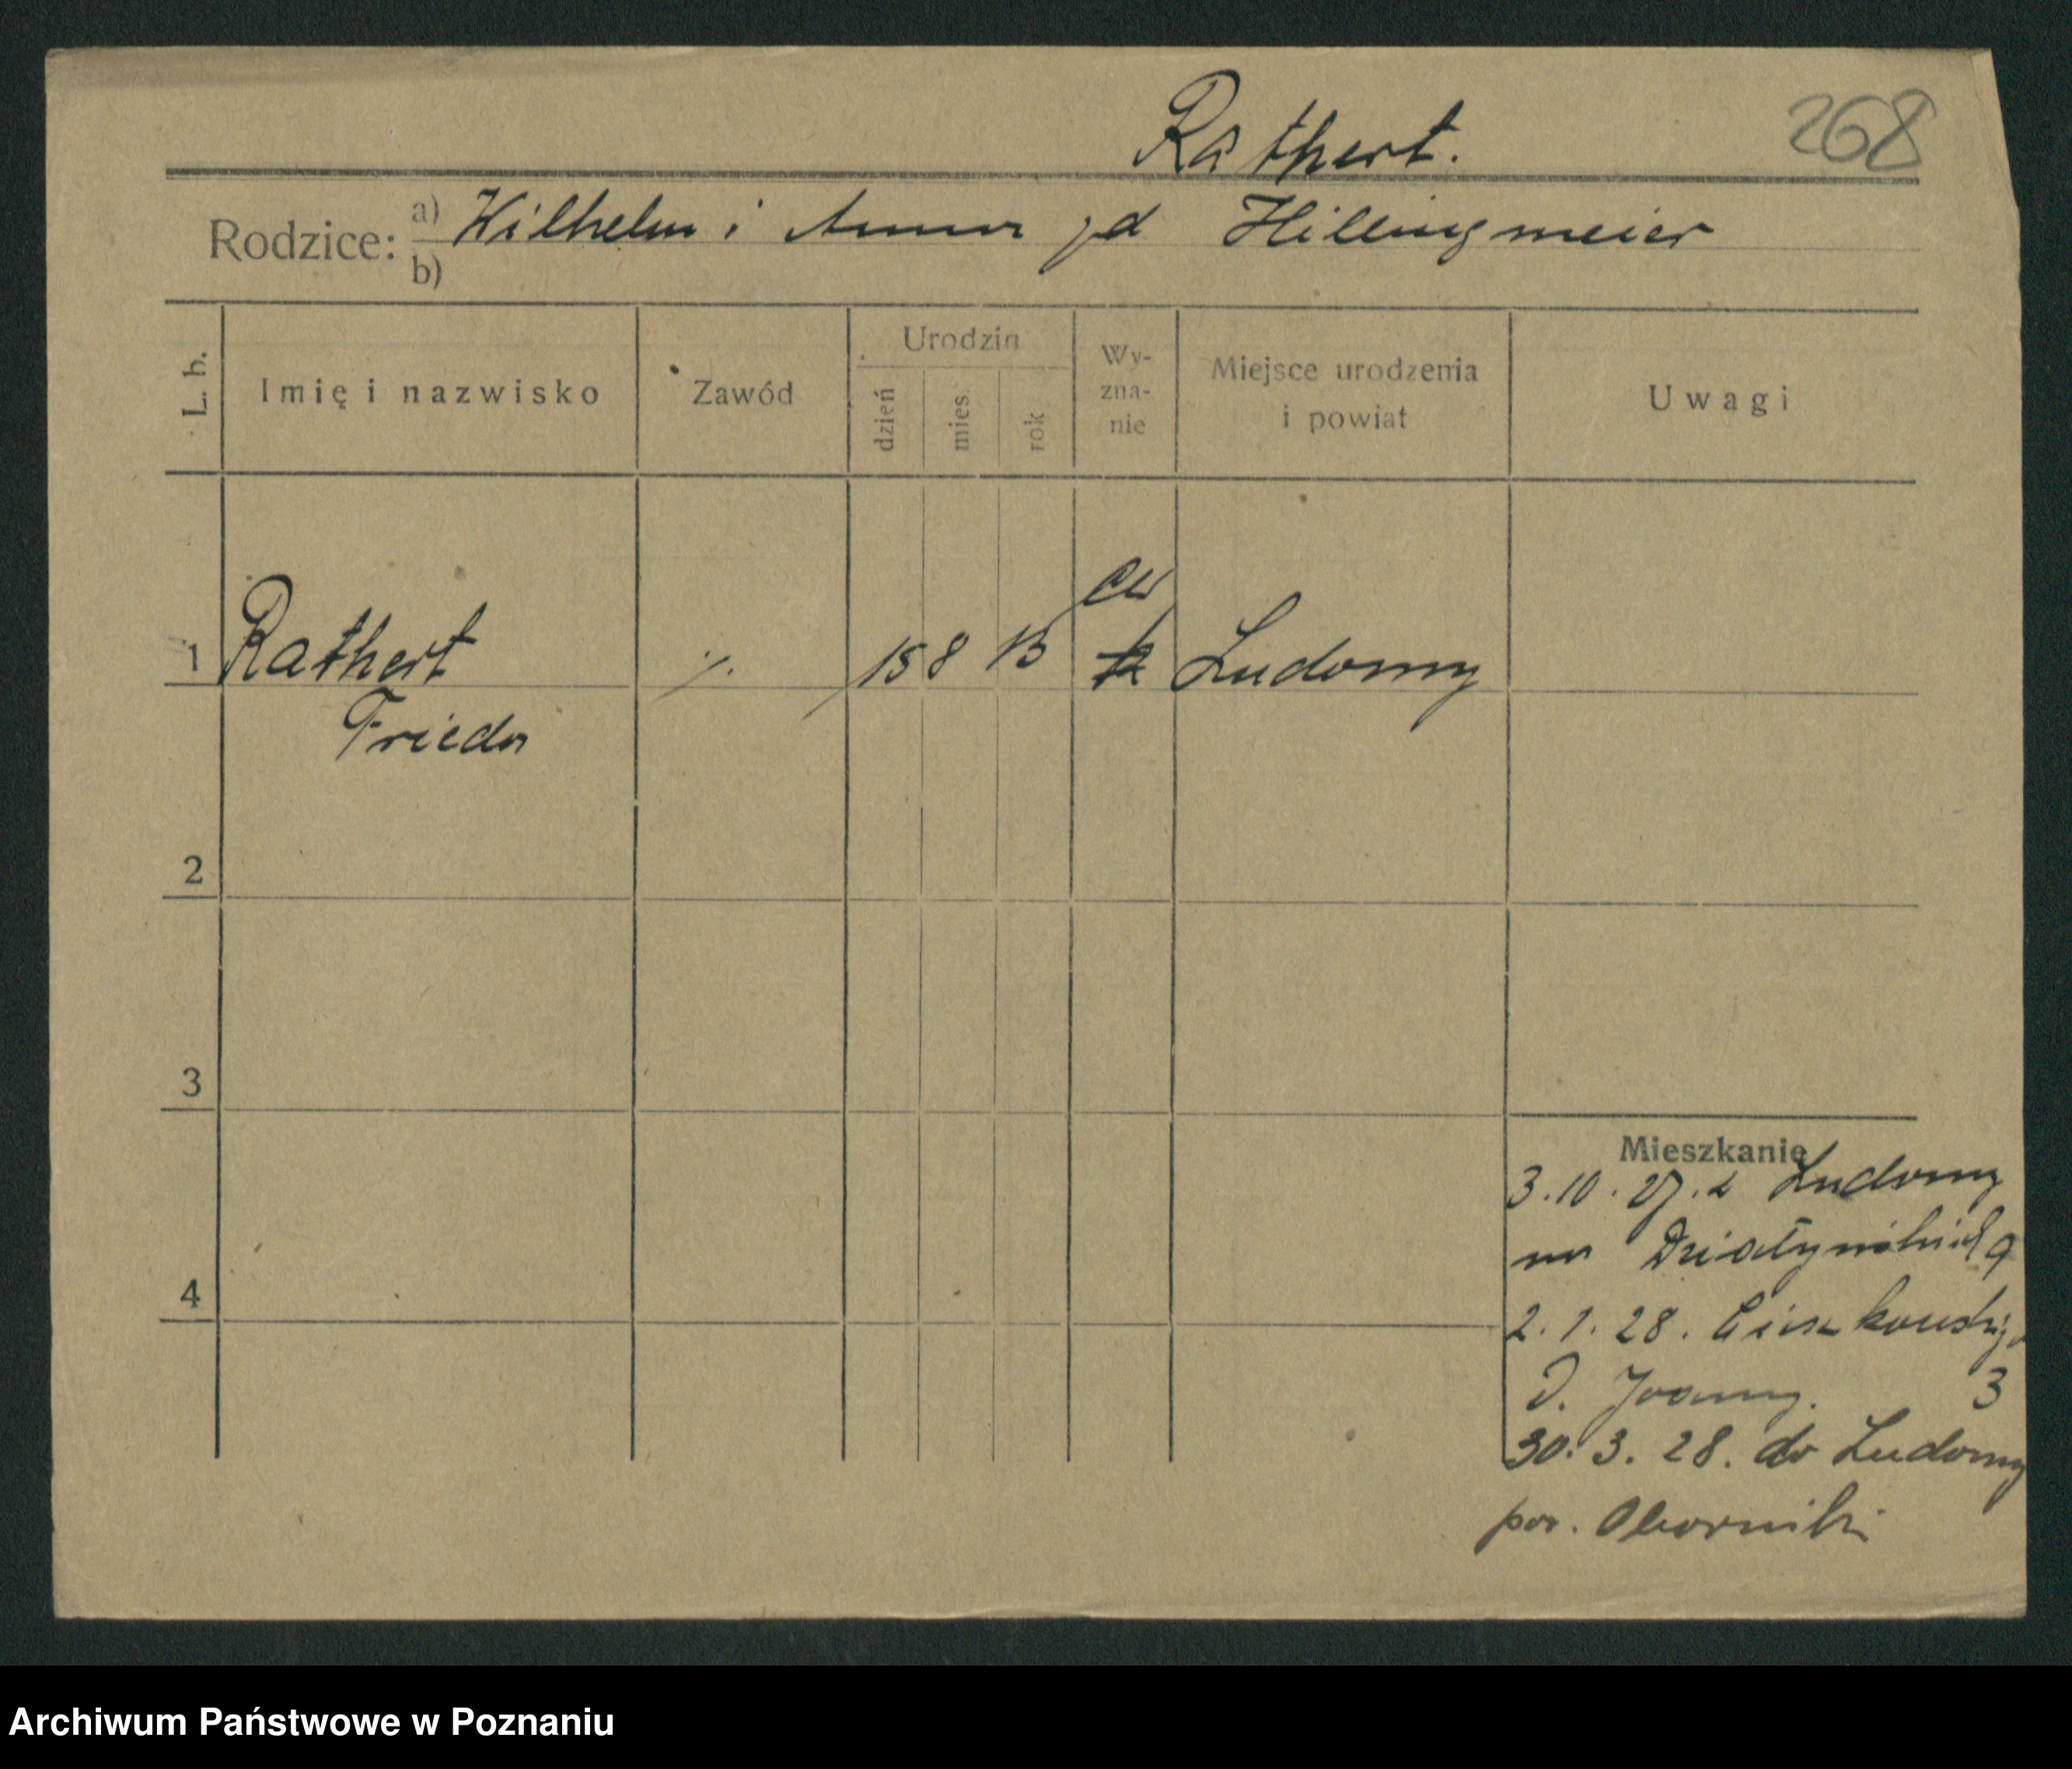 Rathert.
268
Rodzice: a) Wilhelm i Anna zd Hillingmeier
b)
L. b.
Imię i nazwisko
Zawód
Urodzin
dzień
mies.
rok
Wy-
zna-
nie
Miejsce urodzenia
i powiat
Uwagi
1 Rathert ·/. 15 8 13 ew Ludomy
Frieda
2
3
4
Mieszkanie
3.10.27. z Ludomy
na Działyńskich 9
2.1.28. Cieszkowskiego
3
30.3.28. do Ludomy
pow. Oborniki
Archiwum Państwowe w Poznaniu